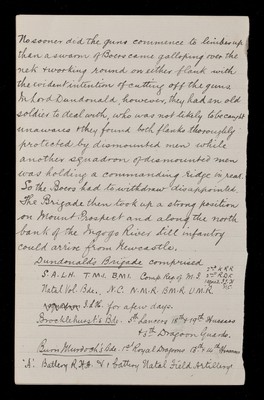 No sooner did the guns commence to limber up
than a swarm of Boers came galloping over the
nek & working round on either flank with
the evident intention of cutting off the guns.
In Lord Dundonald, however, they had an old
soldier to deal with, who was not likely to be caught
unawares & they found both flanks thoroughly
protected by dismounted men while
another squadron of dismounted men
was holding a commanding ridge in rear.
So the Boers had to withdraw disappointed.
The Brigade then took up a strong position
on Mount Prospect and along the north
bank of the Ingogo River till infantry
could arrive from Newcastle.
Dundonald's Brigade comprised
S.A.L.H. T.M.I. B.M.I. Comp. Regt of M.I.
Natal Vol. Bde. N.C. N.M.R. B.M.R. U.M.R.
I.L.H. for a few days.
Brocklehurst's Bde. 5th Lancers 18th & 19th Hussars
& 5th Dragoon Guards.
Burn Murdoch's Bde. 1st Royal Dragoons 13th & 14th Hussars
'A' Battery R.H.A. & 1 battery Natal Field Artillery